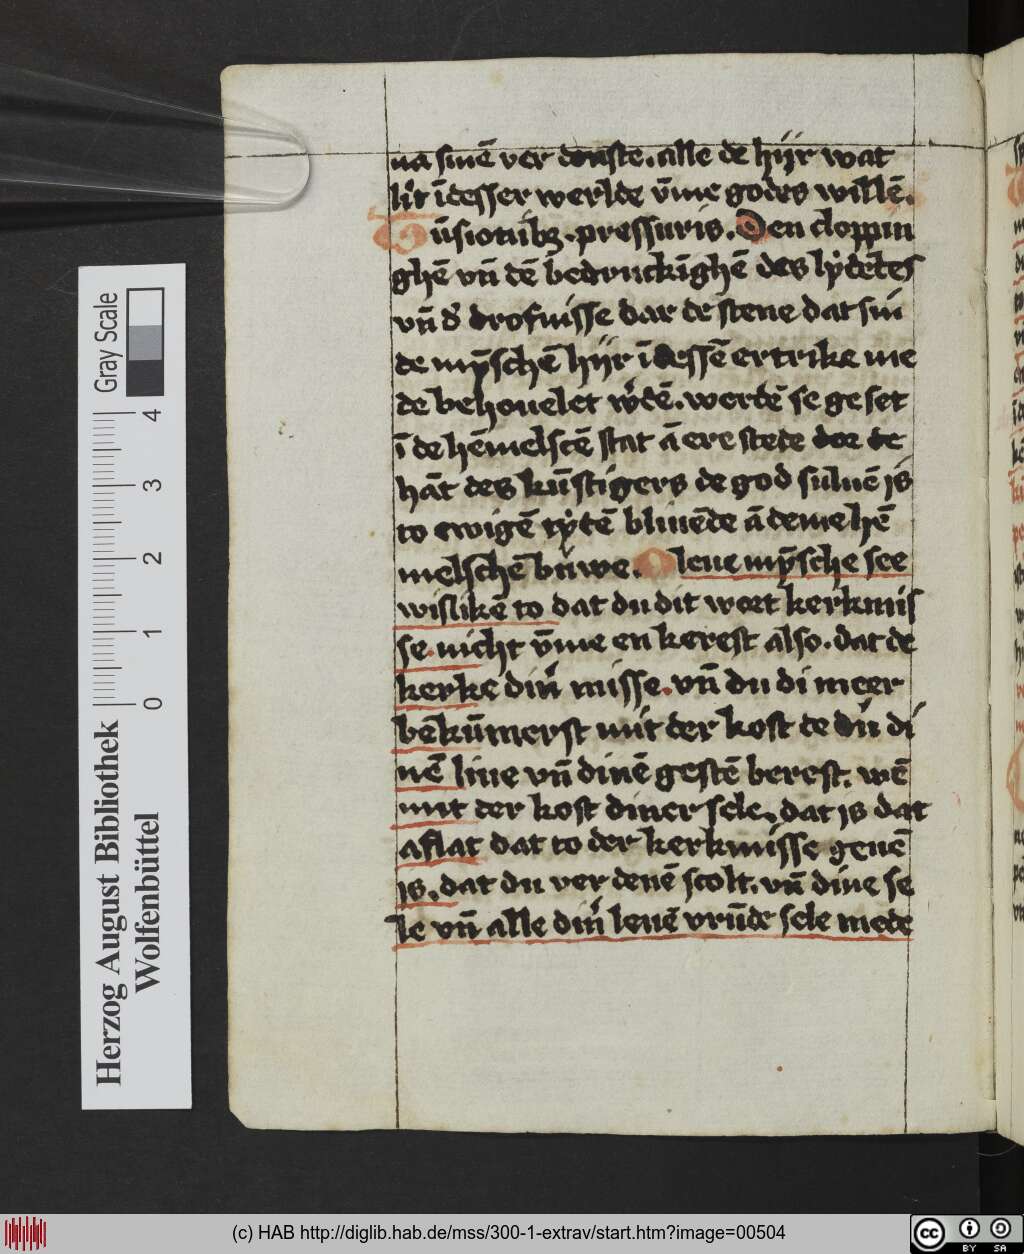 na sinē ver denste. alle de hijr wat
lit īdesser werlde v̄me godes willē.
Tūsionibꝫ. pressuris. Den cloppin
ghē vn̄ dē bedruckīghē des lydētes
vn̄ d' drofnisse dar de stene dat sin
de mȳschē hijr ī dessē ertrike me
de behouelet
werdē se ge set
ī de hēmelscē stat ā ere stede dor de
hāt des kūstigers de god suluē is
to ewigē tydē bliuēde ā deme hē
melschē buwe. O leue mȳsche see
wislikē to dat du dit wort kerkmis
se nicht v̄me en kerest also. dat de
kerke din' misse. vn̄ du di meer
bekūmerst mit der kost de du di
nē liue vn̄ dinē gestē berest. wē
mit der kost diner sele. dat is dat
aflat dat to der kerkmisse geuē
is. dat du ver denē scolt. vn̄ dine se
le vn̄ alle din' leuē vrūde sele mede
Herzog August Bibliothek
Wolfenbüttel
0 1 2 3 4
Gray Scale
(c) HAB http://diglib.hab.de/mss/300-1-extrav/start.htm?image=00504
cc BY SA